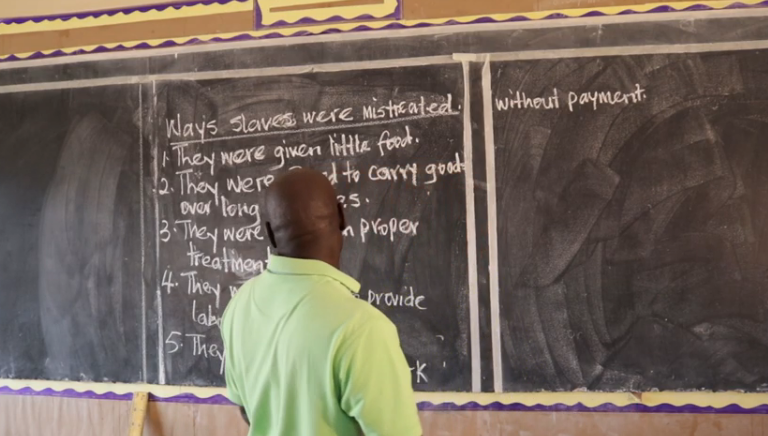 Ways slaves were mistreated.
1. They were given little food.
2. They were to carry good
over long
3. They were proper
treatment
4. They provide
5. They
without payment.